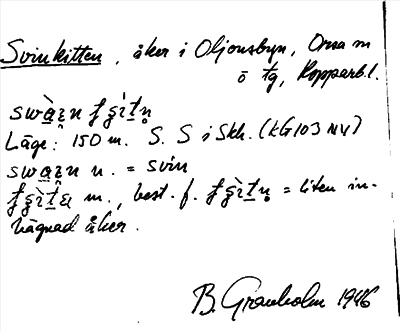 Svinkitten, åker i Oljonsbyn, Orsa sn
ö tg, Kopparb.l.
Läge: 150 m. S. S i Skh. (KG103 NV)
n. = svin
m., best. f. = liten in-
hägnad åker.
B. Granholm 1946